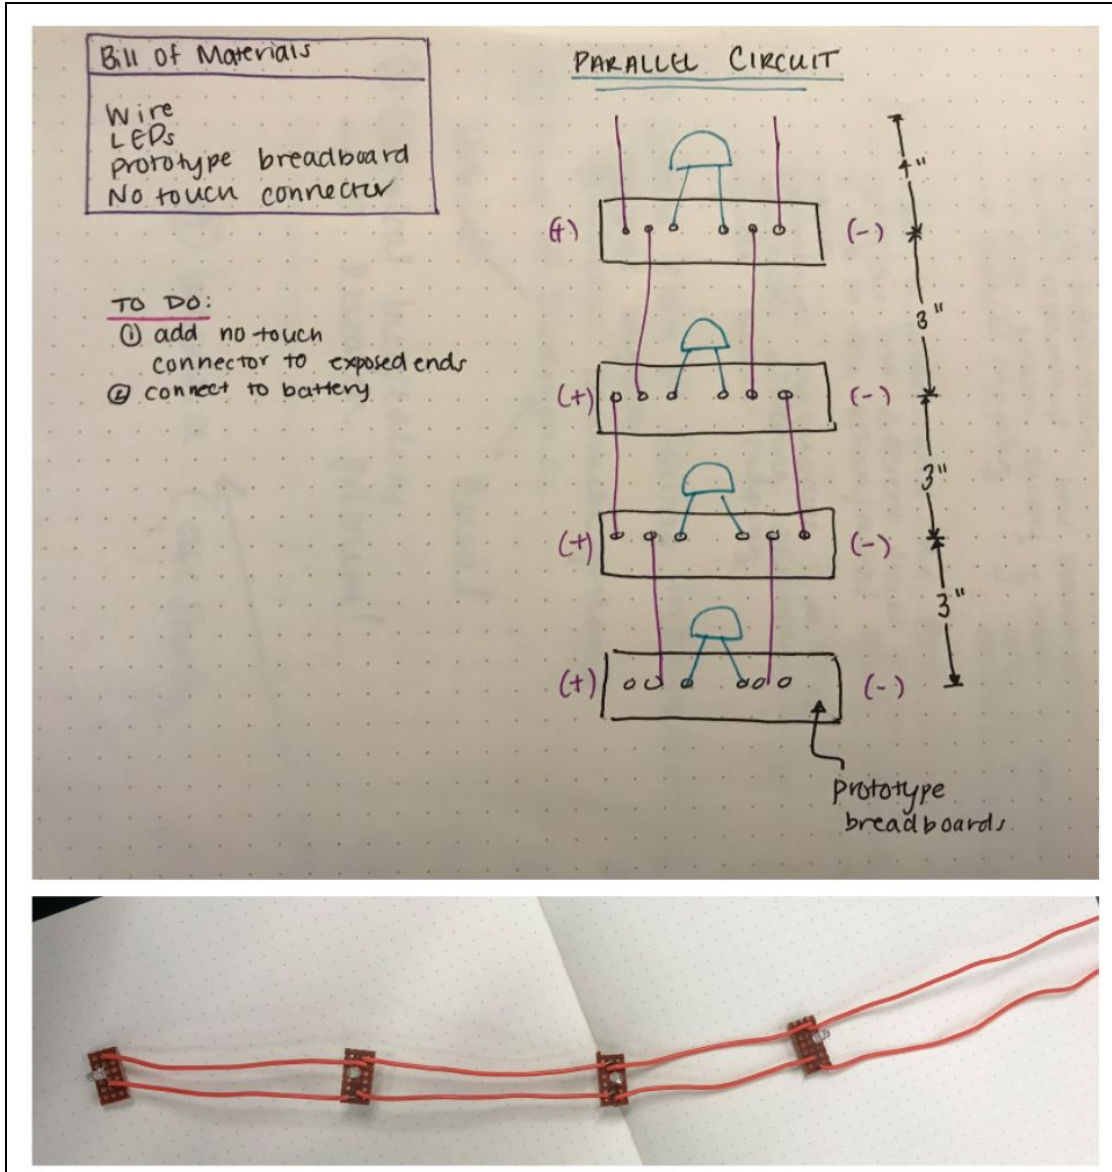 Bill Of Materials
Wire
LEDs
Prototype breadboard
No touch connector
TO DO:
① add no touch
connector to exposed ends
② connect to battery
PARALLEL CIRCUIT
4"
(+) (-)
3"
(+) (-)
3"
(+) (-)
3"
(+) (-)
prototype
breadboards